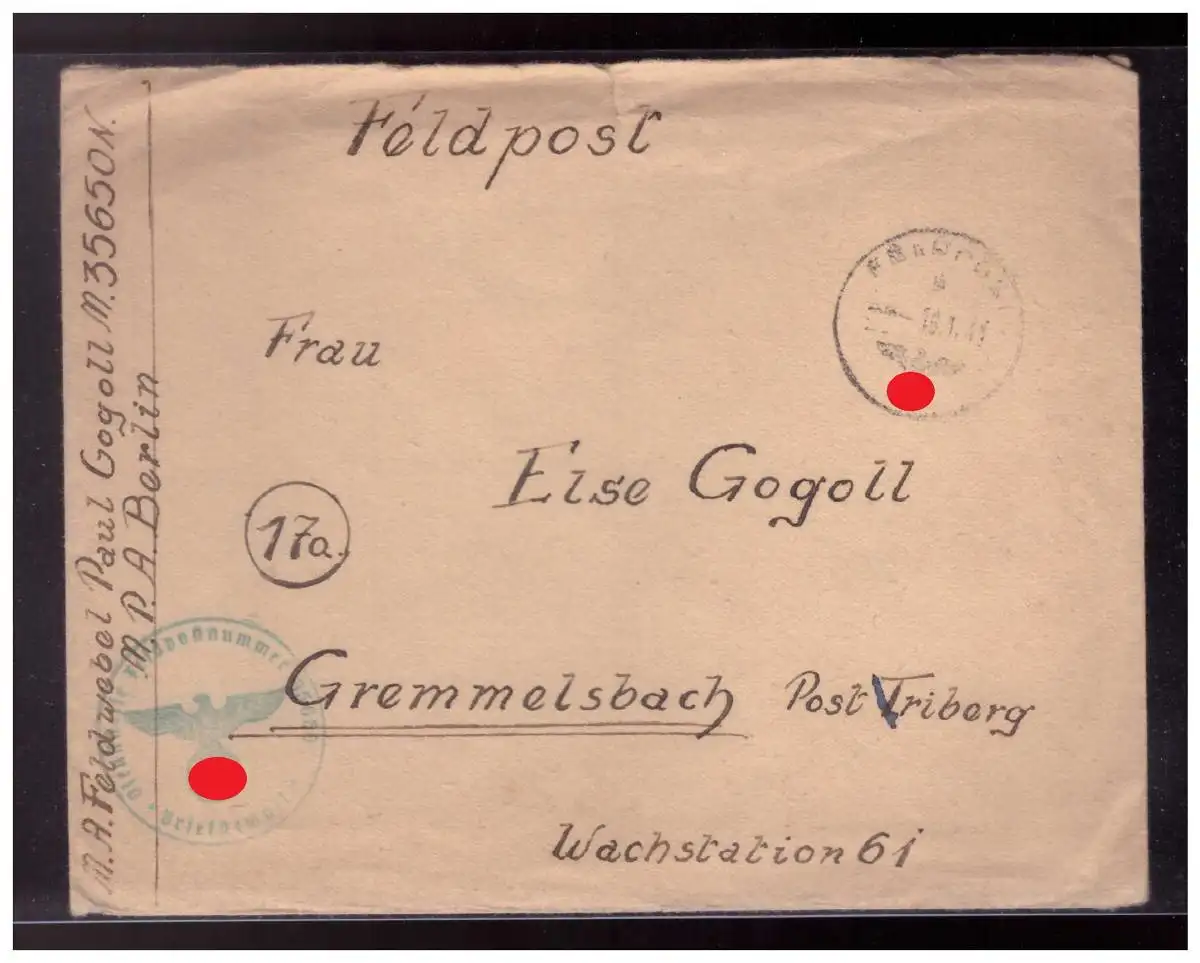 Feldpost
Frau
Else Gogoll
17a.
Gremmelsbach Post Triberg
Wachstation 61
M.A. Feldwebel Paul Gogoll M.35650N.
M.P.A. Berlin